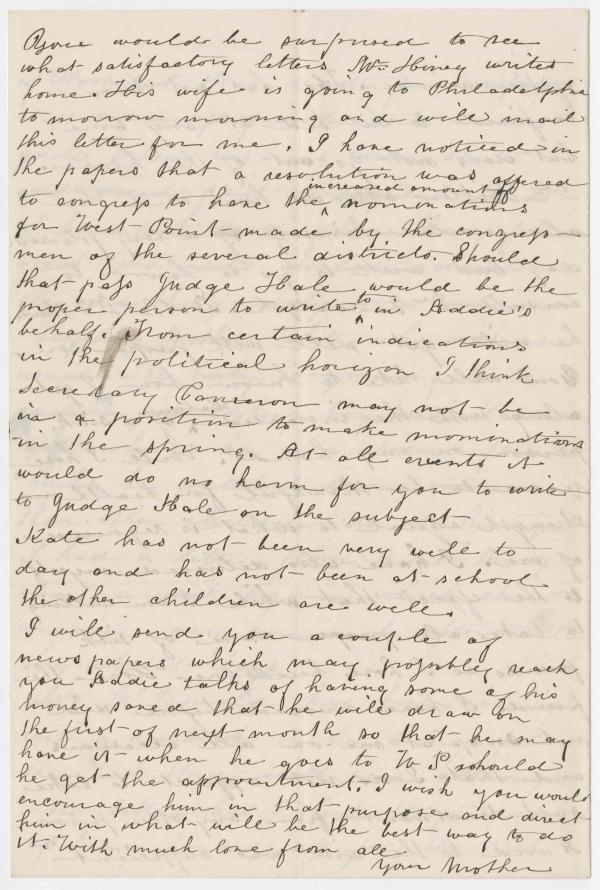 You would be surprised to see
what satisfactory letters Wm Hiney writes
home. His wife is going to Philadelphia
to morrow morning and will mail
this letter for me. I have noticed in
the papers that a resolution was offered
increased amount of
to congress to have the ^ nominations
for West-Point-made by the congress-
men of the several districts. Should
that pass Judge Hale would be the
proper person to write ^ to in Addie's
behalf. From certain indications
in the political horizon I think
Secretary Cameron may not be
in a position to make nominations
in the spring. At all events it
would do no harm for you to write
to Judge Hale on the subject
Kate has not been very well to
day and has not been at school
the other children are well.
I will send you a couple of
news papers which may possibly reach
you Addie talks of having some of his
money saved that he will draw on
the first of next month so that he may
have it when he goes to W P schould
he get the appointment. I wish you would
encourage him in that purpose and direct
him in what will be the best way to do
it. With much love from all
Your Mother